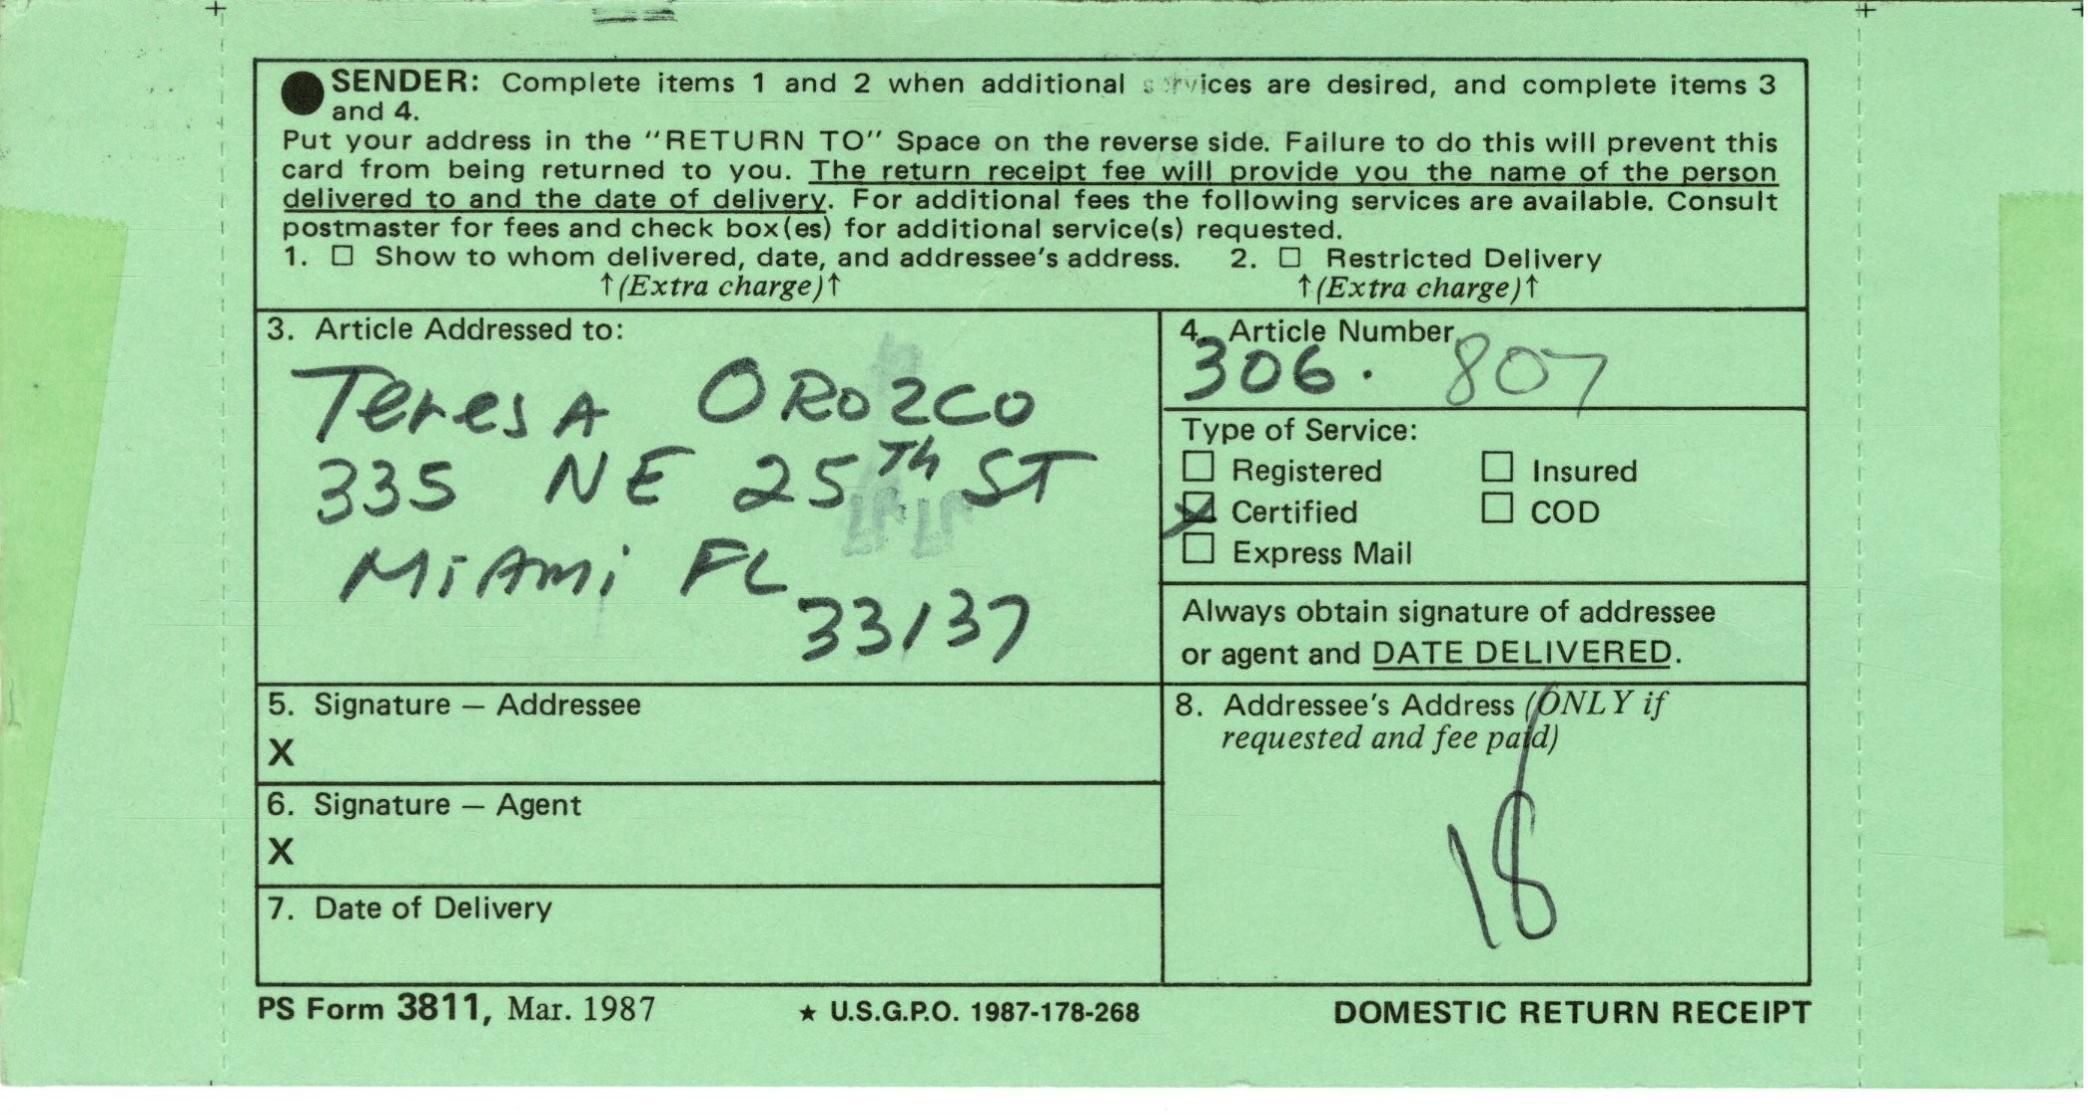 SENDER: Complete items 1 and 2 when additional services are desired, and complete items 3
and 4.
Put your address in the "RETURN TO" Space on the reverse side. Failure to do this will prevent this
card from being returned to you. The return receipt fee will provide you the name of the person
delivered to and the date of delivery. For additional fees the following services are available. Consult
postmaster for fees and check box(es) for additional service(s) requested.
1. ☐ Show to whom delivered, date, and addressee's address. 2. ☐ Restricted Delivery
↑(Extra charge)↑ ↑(Extra charge)↑
3. Article Addressed to:
Teresa Orozco
335 NE 25th ST
Miami FL
33137
4. Article Number
306. 807
Type of Service:
☐ Registered ☐ Insured
☒ Certified ☐ COD
☐ Express Mail
Always obtain signature of addressee
or agent and DATE DELIVERED.
5. Signature — Addressee
X
6. Signature — Agent
X
7. Date of Delivery
8. Addressee's Address (ONLY if
requested and fee paid)
18
PS Form 3811, Mar. 1987 ★ U.S.G.P.O. 1987-178-268 DOMESTIC RETURN RECEIPT